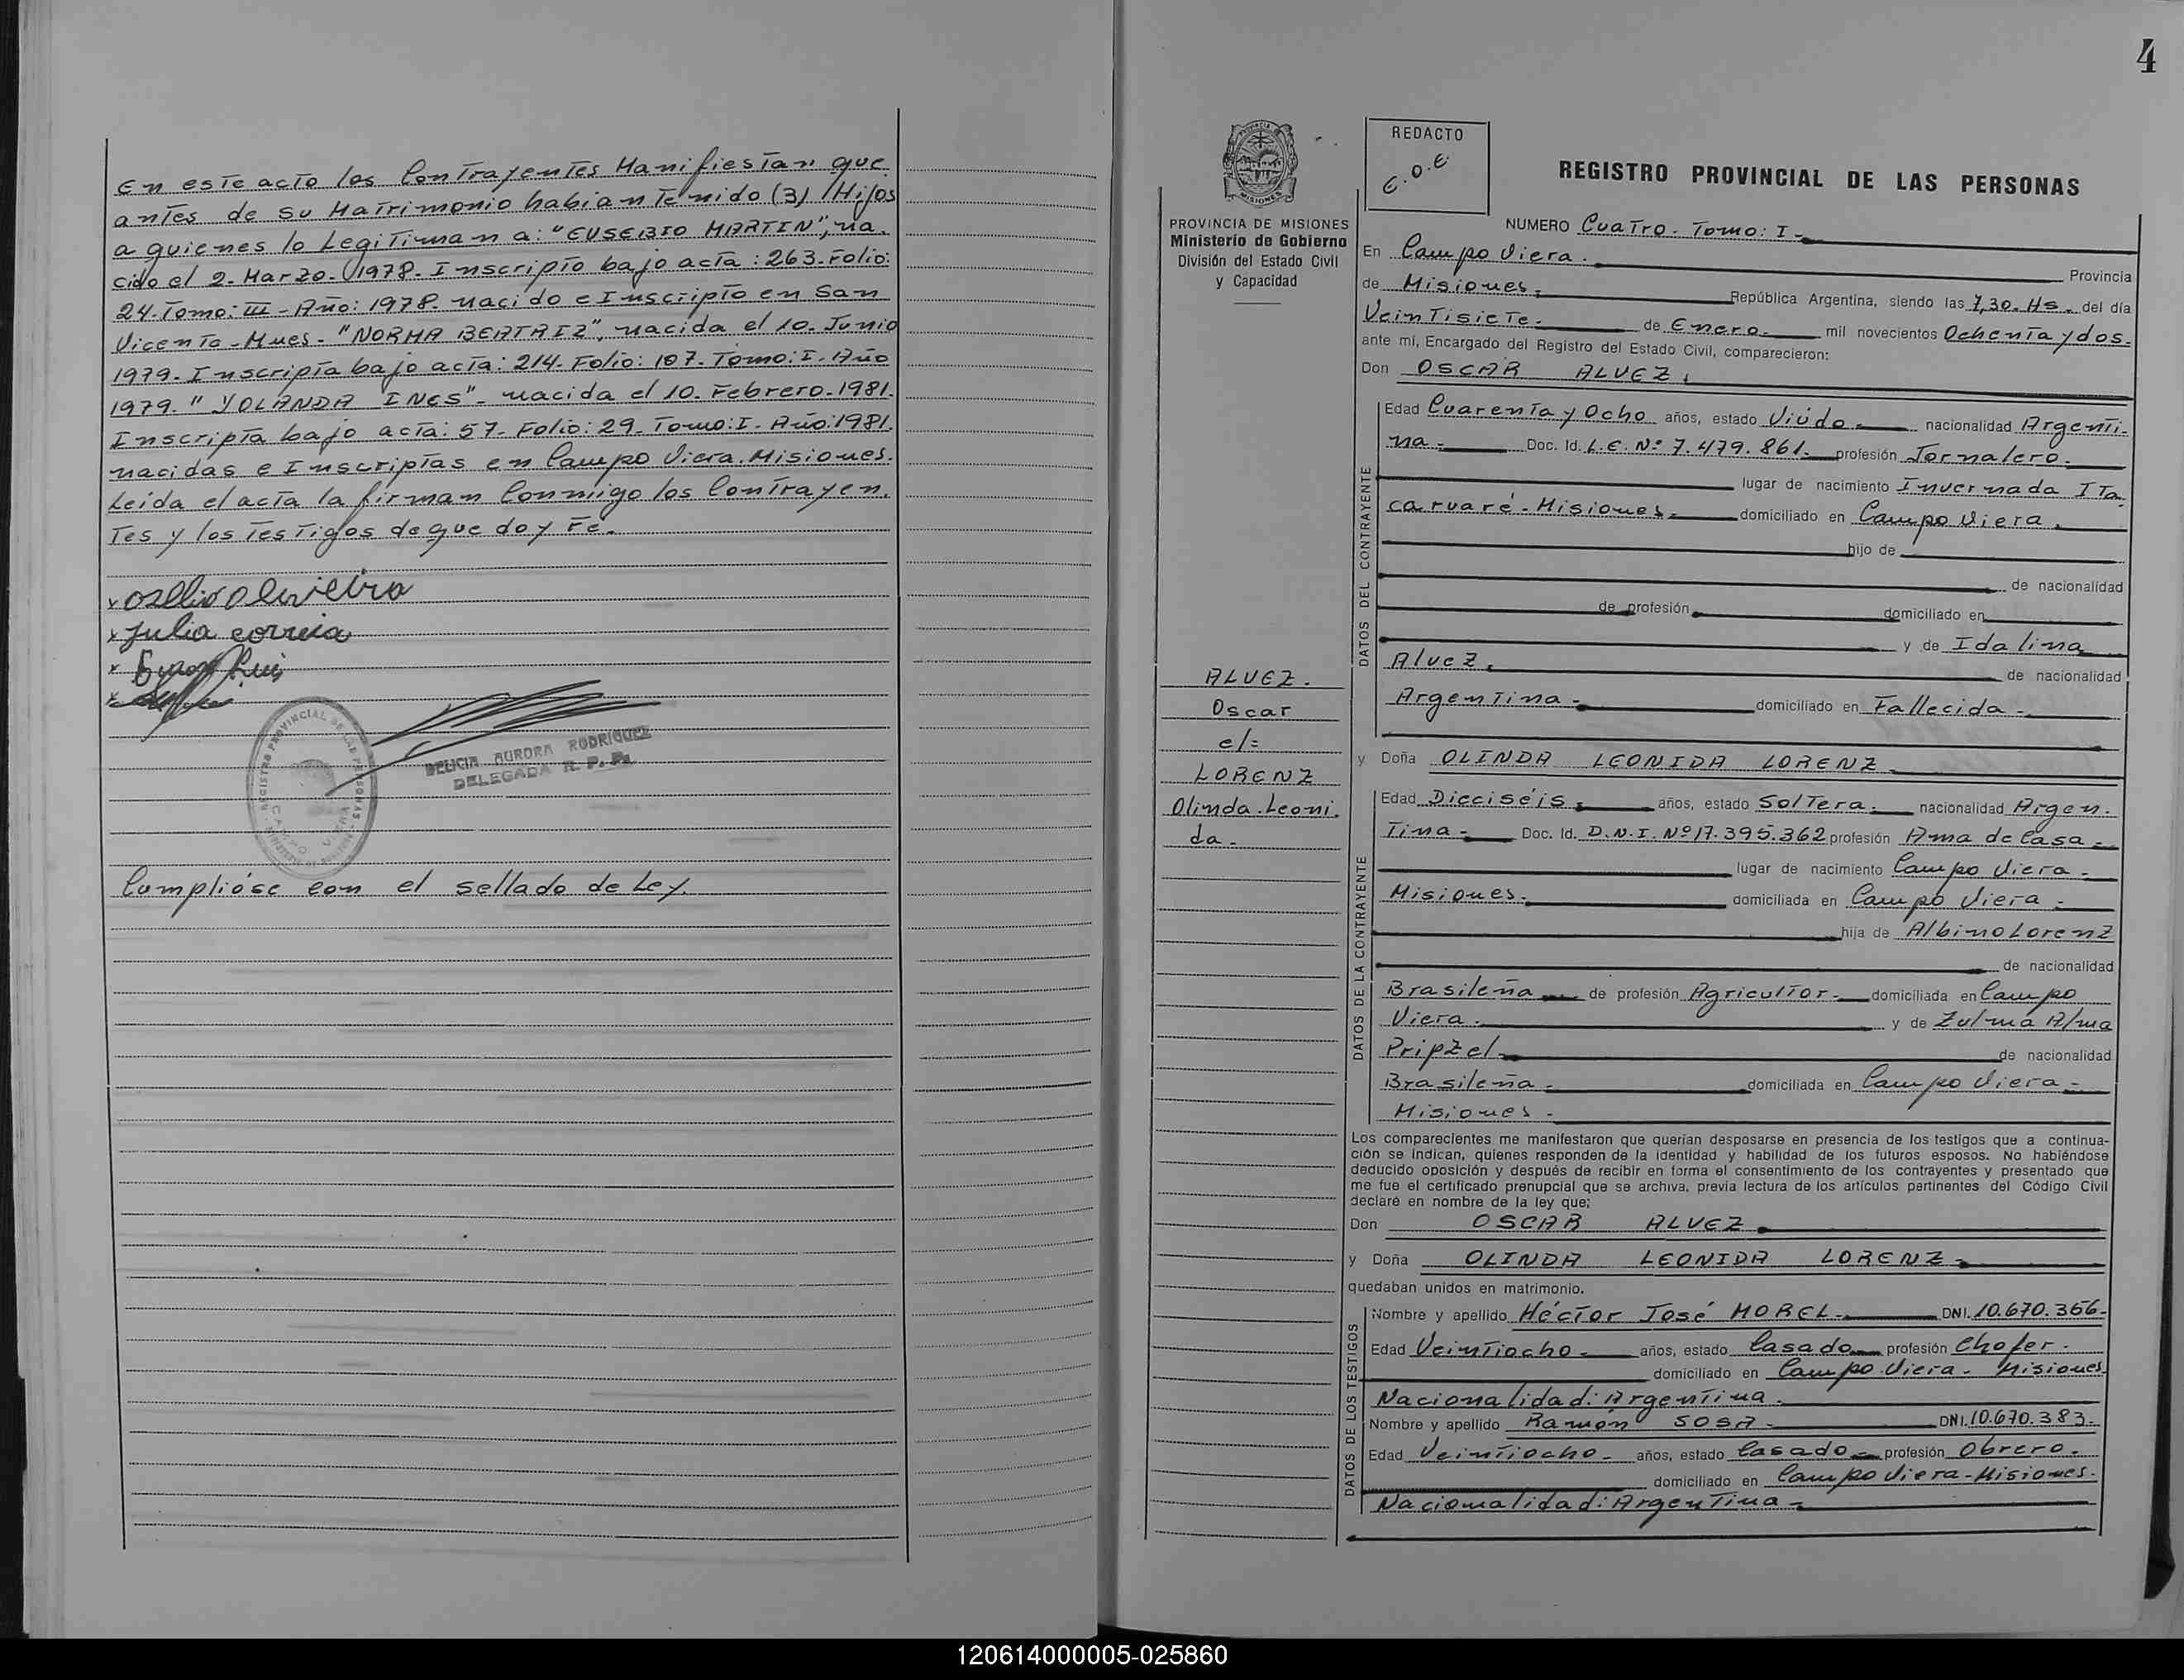 En este acto los Contrayentes Manifiestan que
antes de su Matrimonio habian tenido (3) Hijos
a quienes lo Legitiman a: "EUSEBIO MARTIN", na.
cido el 2. Marzo. 1978. Inscripto bajo acta: 263. Folio:
24. Tomo: III - Año: 1978. nacido e Inscripto en San
Vicente - Mnes. "NORMA BEATRIZ", nacida el 10. Junio
1979. Inscripta bajo acta: 214. Folio: 107. Tomo: I. Año
1979. "YOLANDA INES" - nacida el 10. Febrero. 1981.
Inscripta bajo acta: 57. Folio: 29. Tomo: I. Año: 1981.
nacidas e Inscriptas en Campo Viera. Misiones.
Leida el acta la firman Conmigo los Contrayen.
tes y los Testigos de que doy Fe.
Julia correia
DELICIA AURORA RODRIGUEZ
DELEGADA R. P. P.
REGISTRO PROVINCIAL DE LAS PERSONAS
CAMPO VIERA
Cumplióse con el sellado de Ley.
4
PROVINCIA DE MISIONES
Ministerio de Gobierno
División del Estado Civil
y Capacidad
ALVEZ.
Oscar
c/=
LORENZ
Olinda Leoni.
da.
REDACTO
E.O.E
REGISTRO PROVINCIAL DE LAS PERSONAS
NUMERO Cuatro. Tomo: I -
En Campo Viera. Provincia
de Misiones. República Argentina, siendo las 7,30. Hs. del día
Veintisiete. de Enero. mil novecientos Ochenta y dos.
ante mí, Encargado del Registro del Estado Civil, comparecieron:
Don OSCAR ALVEZ.
DATOS DEL CONTRAYENTE
Edad Cuarenta y Ocho años, estado Viúdo nacionalidad Argenti-
na - Doc. Id. L.E. Nº 7.479.861. profesión Jornalero.
lugar de nacimiento Invernada Ita.
caruaré - Misiones. domiciliado en Campo Viera.
hijo de
de nacionalidad
de profesión domiciliado en
y de Idalina
Alvez. de nacionalidad
Argentina - domiciliado en Fallecida -
y Doña OLINDA LEONIDA LORENZ
DATOS DE LA CONTRAYENTE
Edad Dieciséis. años, estado Soltera. nacionalidad Argen.
tina - Doc. Id. D.N.I. Nº 17.395.362 profesión Ama de Casa -
lugar de nacimiento Campo Viera -
Misiones. domiciliada en Campo Viera -
hija de Albino Lorenz
de nacionalidad
Brasileña de profesión Agricultor - domiciliada en Campo
Viera. y de Zulma Alma
Pripzel de nacionalidad
Brasileña - domiciliada en Campo Viera -
Misiones -
Los comparecientes me manifestaron que querían desposarse en presencia de los testigos que a continua-
ción se indican, quienes responden de la identidad y habilidad de los futuros esposos. No habiéndose
deducido oposición y después de recibir en forma el consentimiento de los contrayentes y presentado que
me fue el certificado prenupcial que se archiva, previa lectura de los artículos pertinentes del Código Civil
declaré en nombre de la ley que:
Don OSCAR ALVEZ
y Doña OLINDA LEONIDA LORENZ -
quedaban unidos en matrimonio.
DATOS DE LOS TESTIGOS
Nombre y apellido Héctor José MOREL. DNI. 10.670.366-
Edad Veintiocho - años, estado Casado profesión Chofer.
domiciliado en Campo Viera - Misiones
Nacionalidad: Argentina -
Nombre y apellido Ramón SOSA - DNI. 10.670.383.
Edad Veintiocho - años, estado Casado - profesión Obrero.
domiciliado en Campo Viera - Misiones.
Nacionalidad: Argentina -
120614000005-025860